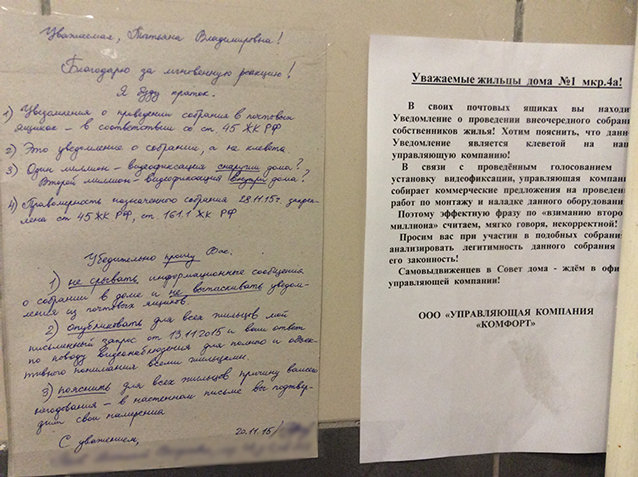 Уважаемая, Татьяна Владимировна!
Благодарю за мгновенную реакцию!
Я буду краток.
1) Уведомления о проведении собрания в почтовых
ящиках – в соответствии со ст. 45 ЖК РФ
2) Это уведомление о собрании, а не клевета.
3) Один миллион – видеофиксация снаружи дома?
Второй миллион – видеофиксация внутри дома?
4) Правомерность назначенного собрания 28.11.15г. закреп-
лена ст 45 ЖК РФ, ст. 161.1 ЖК РФ.
Убедительно прошу Вас:
1) не срывать информационные сообщения
о собрании в доме и не вытаскивать уведом-
ления из почтовых ящиков.
2) опубликовать для всех жильцов мой
письменный запрос от 13.11.2015 и ваш ответ
по поводу видеонаблюдения для полного и объек-
тивного понимания всеми жильцами.
3) пояснить для всех жильцов причину вашего
негодования – в настенном письме вы подтвер-
дите свои намерения
С уважением,
20.11.15
Уважаемые жильцы дома №1 мкр.4а!
В своих почтовых ящиках вы находи
Уведомление о проведении внеочередного собран
собственников жилья! Хотим пояснить, что данн
Уведомление является клеветой на наш
управляющую компанию!
В связи с проведённым голосованием
установку видеофиксации, управляющая компан
собирает коммерческие предложения на проведен
работ по монтажу и наладке данного оборудован
Поэтому эффектную фразу по «взиманию второ
миллиона» считаем, мягко говоря, некорректной!
Просим вас при участии в подобных собрани
анализировать легитимность данного собрания
его законность!
Самовыдвиженцев в Совет дома - ждём в офи
управляющей компании!
ООО «УПРАВЛЯЮЩАЯ КОМПАНИЯ
«КОМФОРТ»